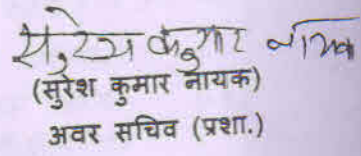 सुरेश कुमार नायक
(सुरेश कुमार नायक)
अवर सचिव (प्रशा.)